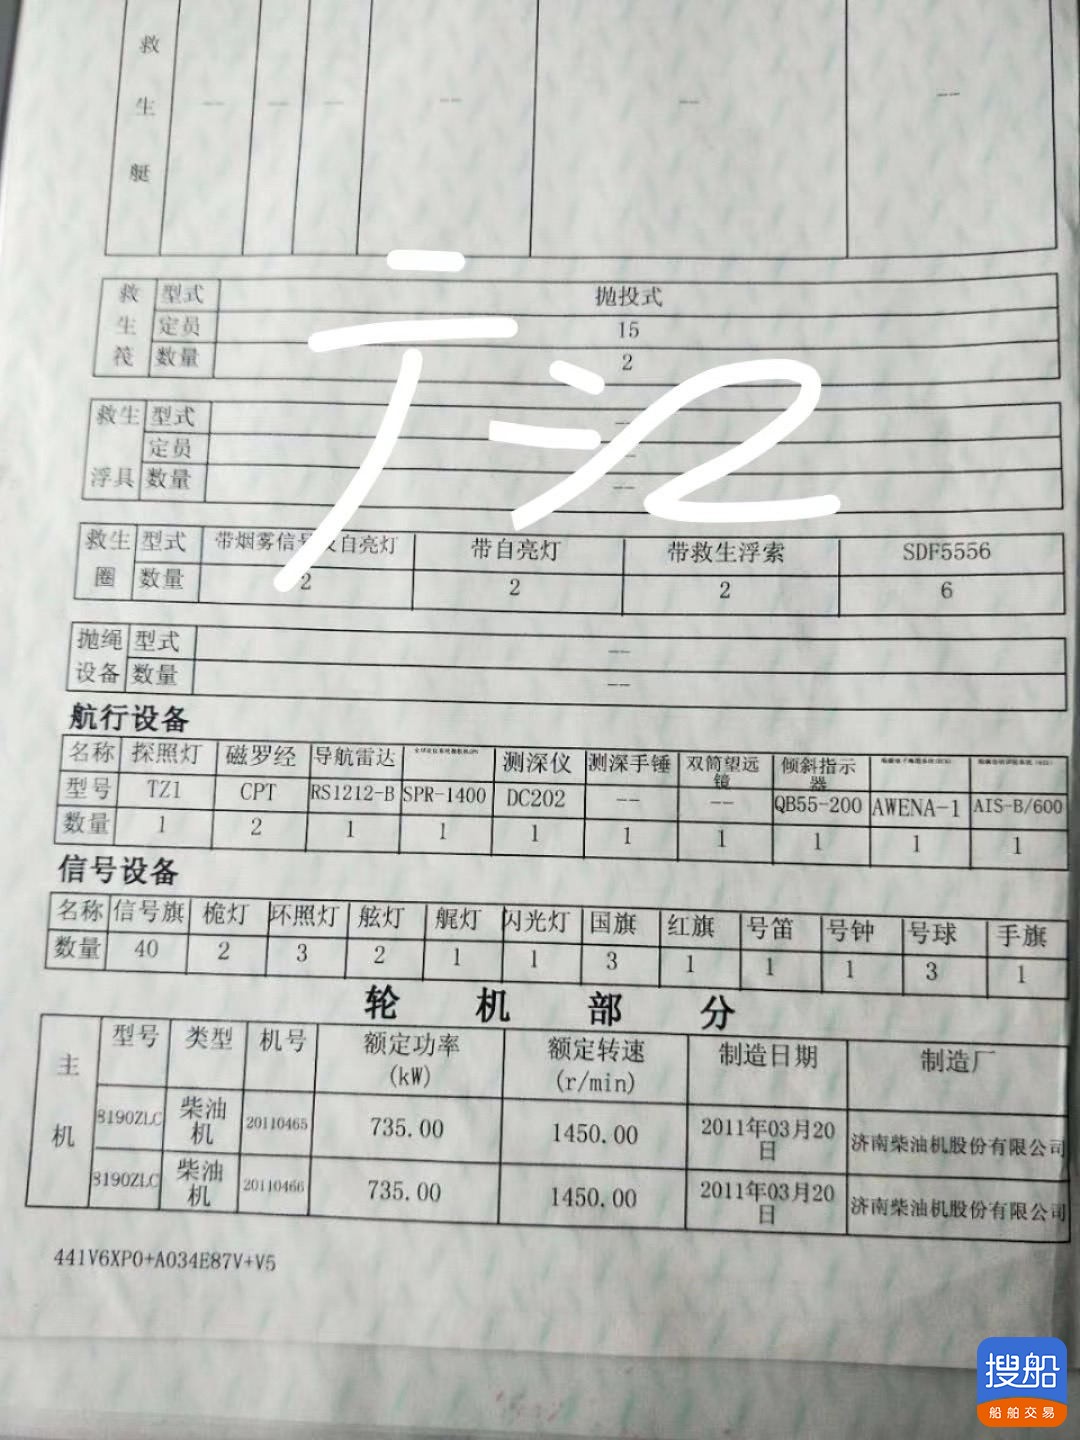 救生艇 -- -- -- -- -- --
救生筏 型式 抛投式
定员 15
数量 2
救生浮具 型式 --
定员 --
数量 --
救生圈 型式 带烟雾信号及自亮灯 带自亮灯 带救生浮索 SDF5556
数量 2 2 2 6
抛绳设备 型式 --
数量 --
航行设备
名称 探照灯 磁罗经 导航雷达 测深仪 测深手锤 双筒望远镜 倾斜指示器
型号 TZ1 CPT RS1212-B SPR-1400 DC202 -- -- QB55-200 AWENA-1 AIS-B/600
数量 1 2 1 1 1 1 1 1 1 1
信号设备
名称 信号旗 桅灯 环照灯 舷灯 艉灯 闪光灯 国旗 红旗 号笛 号钟 号球 手旗
数量 40 2 3 2 1 1 3 1 1 1 3 1
轮机部分
主机 型号 类型 机号 额定功率(kW) 额定转速(r/min) 制造日期 制造厂
8190ZLC 柴油机 20110465 735.00 1450.00 2011年03月20日 济南柴油机股份有限公司
8190ZLC 柴油机 20110466 735.00 1450.00 2011年03月20日 济南柴油机股份有限公司
441V6XP0+A034E87V+V5
搜船
船舶交易